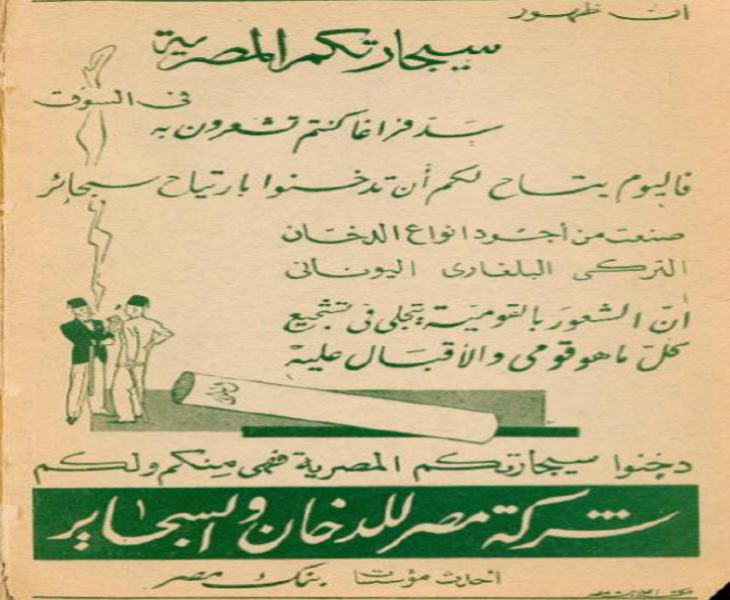 ان ظهور
سيجارتكم المصرية
فى السوق
سد فراغا كنتم تشعرون به
فاليوم يتاح لكم أن تدخنوا بارتياح سيجائر
صنعت من أجود انواع الدخان
التركى البلغارى اليونانى
أن الشعور بالقومية يتجلى فى تشجيع
كل ما هو قومى والأقبال عليه
دخنوا سيجارتكم المصرية فهى منكم ولكم
شركة مصر للدخان والسجاير
احدى مؤسسات بنك مصر